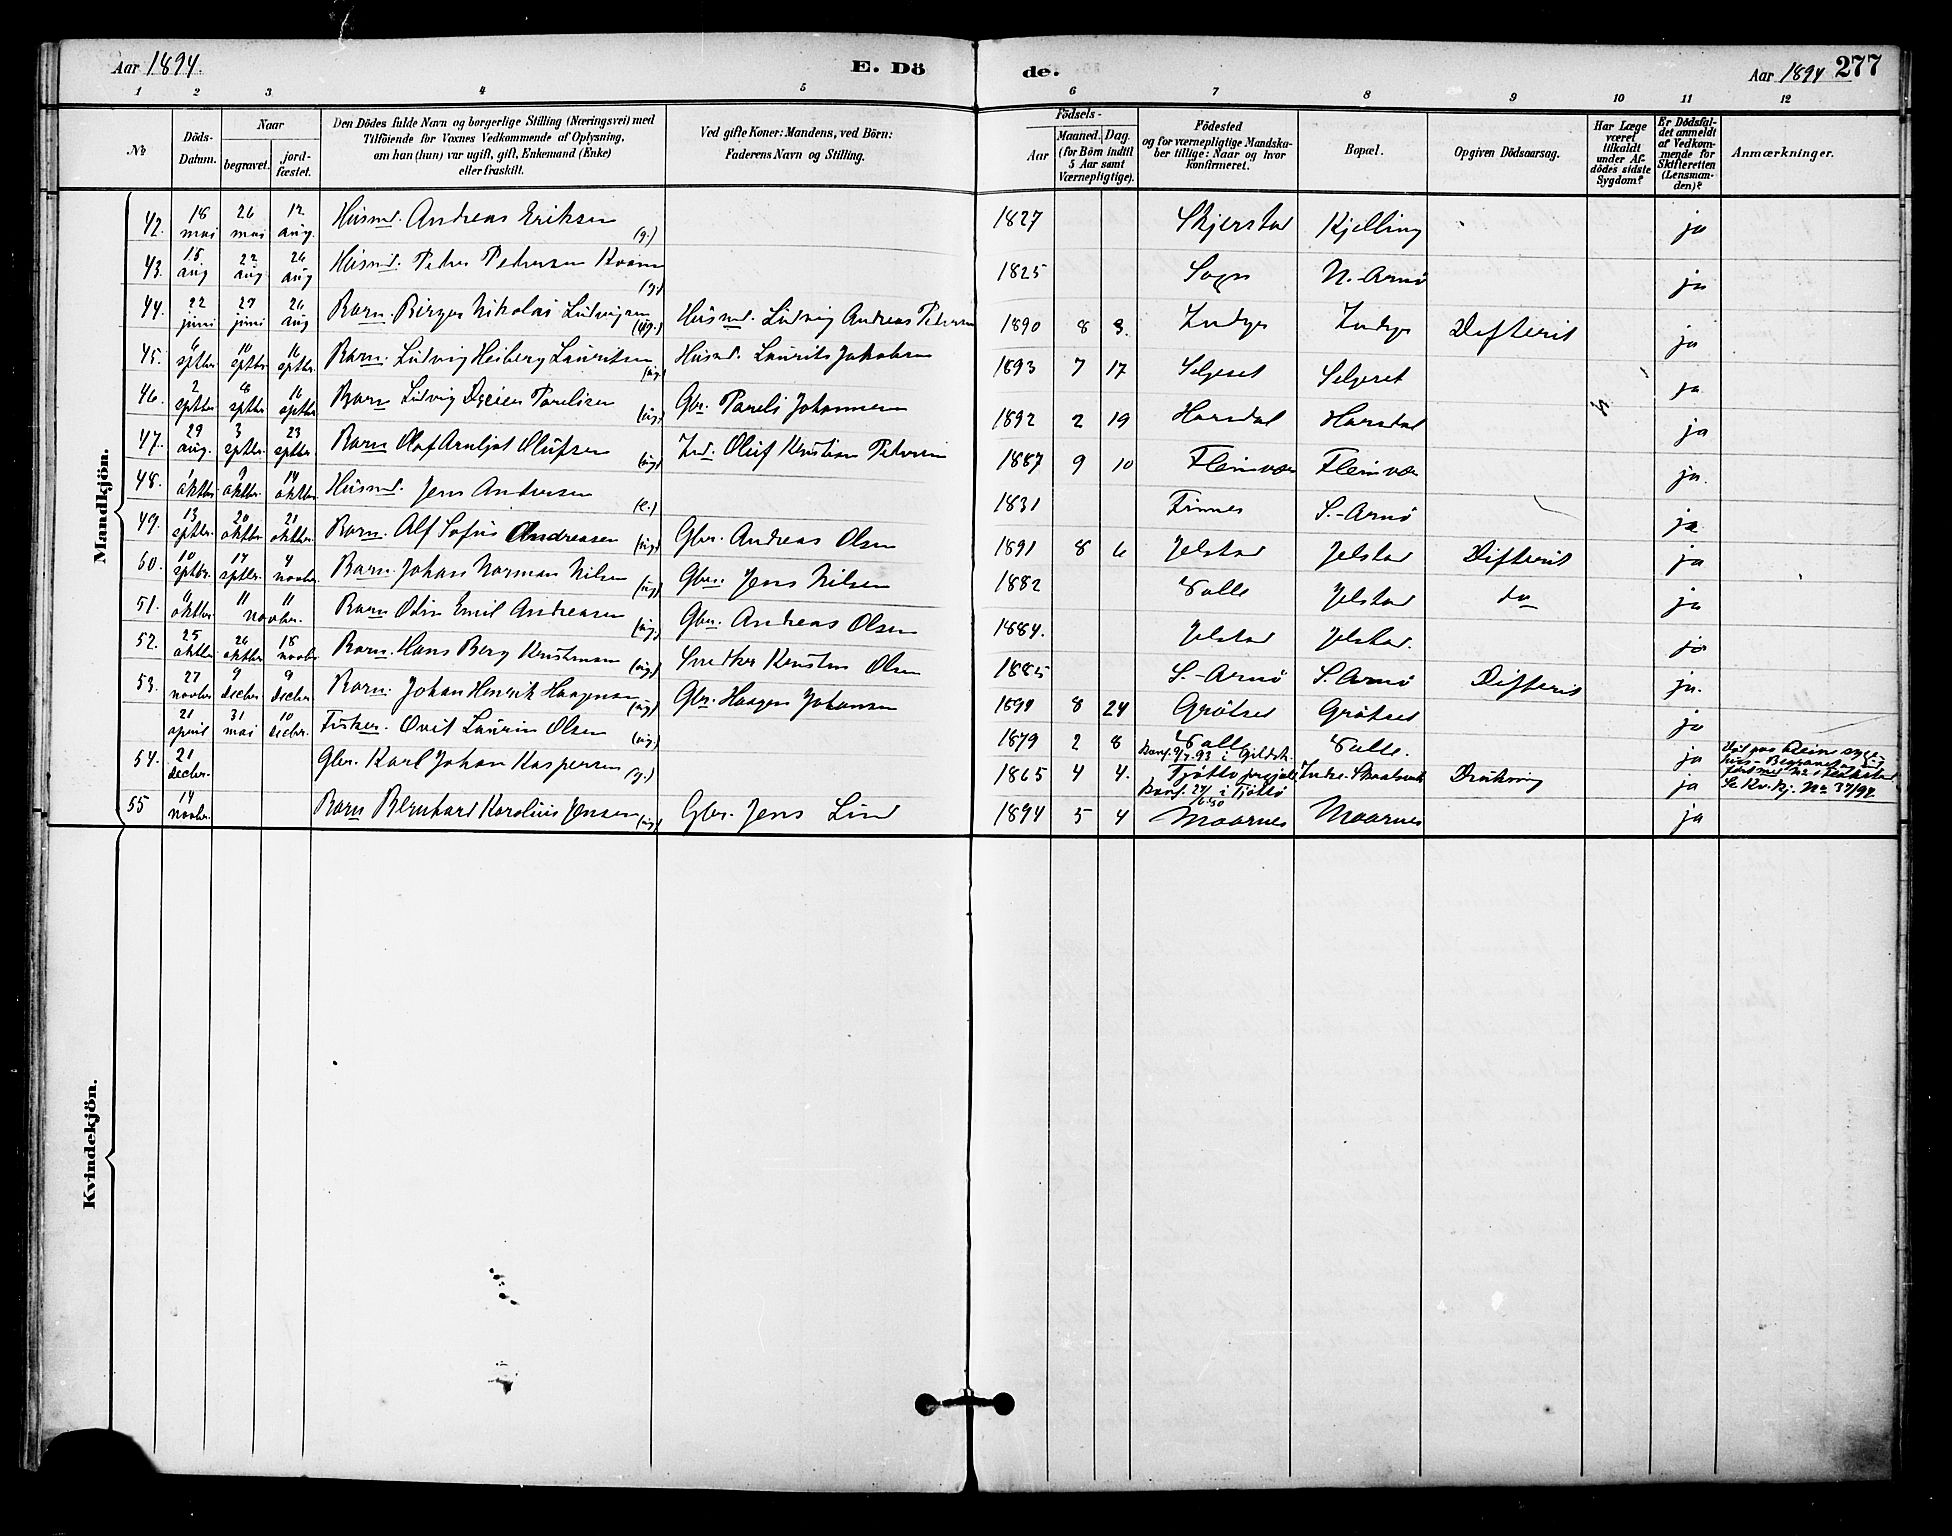 Aar 1894. E. Dö de. Aar 1894 277
1 2 3 4 5 6 7 8 9 10 11 12
No Döds-Datum. Naar begravet. jord-fæstet. Den Dödes fulde Navn og borgerlige Stilling (Næringsvei) med Tilföiende for Voxnes Vedkommende af Oplysning, om han (hun) var ugift, gift, Enkemand (Enke) eller fraskilt. Ved gifte Koner: Mandens, ved Börn: Faderens Navn og Stilling. Födsels- Aar Maaned. Dag. (for Börn indtil 5 Aar samt Værnepligtige). Födested og for værnepligtige Mandskaber tillige: Naar og hvor konfirmeret. Bopæl. Opgiven Dödsaarsag. Har Læge været tilkaldt under Afdödes sidste Sygdom? Er Dödsfaldet anmeldt af Vedkommende for Skifteretten (Lensmanden)? Anmærkninger.
Mandkjön.
42. 18 mai 26 mai 12 aug. Husmd. Andreas Eriksen (g.) 1827 Skjerstad Kjelling ja
43. 15 aug 22 aug 26 aug Husmd. Peder Pedersen Kvam (g.) 1825 Sogn N.-Arnö ja
44. 22 juni 27 juni 26 aug Barn. Birger Nikolai Ludvigsen (ug.) Husmd. Ludvig Andreas Pedersen 1890 8 3. Indyr Indyr Difterit ja
45. 6 sptbr. 10 sptbr. 16 sptbr. Barn. Ludvig Heiberg Lauritsen (ug.) Husmd. Laurits Jakobsen 1893 7 17 Selsset Selsset ja
46. 2 sptbr. 8 sptbr. 16 sptbr. Barn Ludvig Parelisen (ug.) Gbr. Pareli Johannesen 1892 2 19 Horsdal Horsdal ja
47. 29 aug. 3 sptbr. 23 sptbr. Barn Olaf Arnljot Olufsen (ug.) Ind. Oluf Kristian Pedersen 1887 9 10 Fleinvær Fleinvær ja.
48. 1 oktbr. 9 oktbr. 14 oktbr. Husmd. Jens Andersen (e.) 1831 Finnes S.-Arnö ja.
49. 13 sptbr. 20 oktbr. 21 oktbr. Barn. Alf Sofus Andreasen (ug.) Gbr. Andreas Olsen 1891 8 6 Jelstad Jelstad Difterit ja
50. 10 sptbr. 17 sptbr. 4 novbr. Barn. Johan Norman Nilsen (ug.) Gbr. Jens Nilsen 1882 Valle Jelstad do ja
51. 11 oktbr. 11 11 novbr. Barn Odin Emil Andreasen (ug.) Gbr. Andreas Olsen 1884. Jelstad Jelstad. ja
52. 25 oktbr. 26 oktbr. 18 novbr. Barn. Hans Berg Kristensen (ug.) Snedker Kristen Olsen 1885 S.-Arnö S. Arnö Difterit ja.
53. 27 novbr. 9 decbr. 9 decbr. Barn. Johan Henrik Haagensen (ug.) Gbr. Haagen Johansen 1894 8 24 Grötset Grötset ja
21 april 31 mai 10 decbr. Fisker. Ovit Laurin Olsen (ug.) 1879 2 8 Valle Konf. 9/7 93 i Gildesk. Valle. ja
54. 21 decbr. Gbr. Karl Johan Kaspersen (g.) 1865 4 4. Tjötto prgjeld Konf. i Tjöttö Indre- Drukning ja Se Kv.kj. No 37/94.
55 14 novbr. Barn Bernhard Karolius Jensen (ug.) Gbr. Jens Lund 1894 5 4 Maarnes Maarnes ja
Kvindekjön.